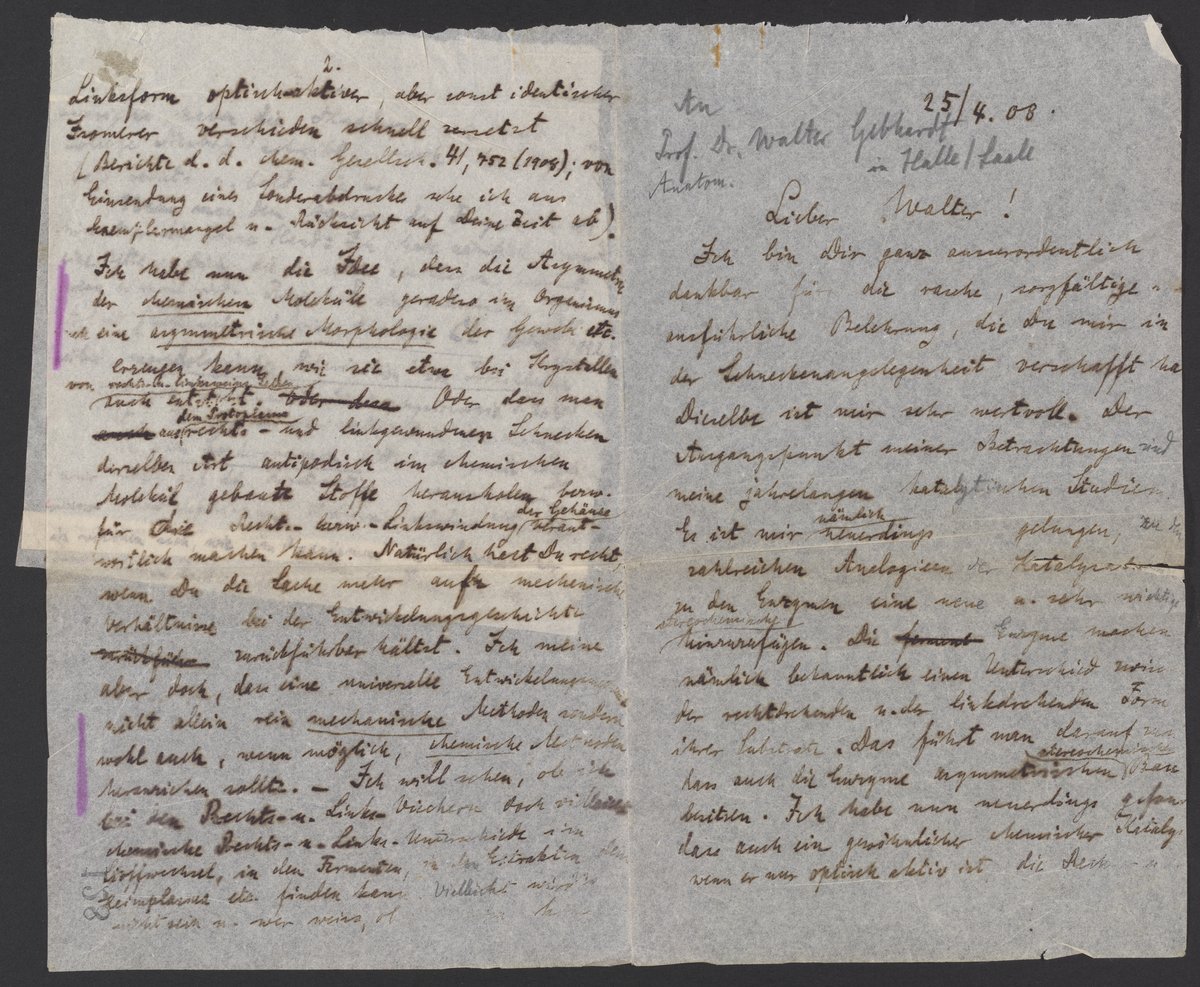 25/4.08.
An
Prof. Dr. Walter Gebhardt
in Halle/Saale
Anatom.
Lieber Walter!
Ich bin Dir ganz ausserordentlich
dankbar für die rasche, sorgfältige u.
ausführliche Belehrung, die Du mir in
der Schneckenangelegenheit verschafft ha
Dieselbe ist mir sehr wertvoll. Der
Ausgangspunkt meiner Betrachtungen sind
meine jahrelangen katalytischen Studien.
Es ist mir nämlich neuerdings gelungen,
zahlreichen Analogieen der
zu den Enzymen eine neue u. sehr wichtige
stereochemische
hinzuzufügen. Die ferment Enzyme machen
nämlich bekanntlich einen Unterschied zwisc
der rechtsdrehenden u. der linksdrehenden Form
ihrer Substrate. Das führt nun darauf
dass auch die Enzyme asymmetrischen stereochemischen Bau
besitzen. Ich habe nun neuerdings gefun
dass auch ein gewöhnlicher chemischer Kataly
wenn er nur optisch aktiv ist die Rech
2.
Linksform optisch-aktiver, aber sonst identischer
Isomerer verschieden schnell zersetzt
(Berichte d. d. chem. Gesellsch. 41, 752 (1908); von
Einsendung eines Sonderabdruckes sehe ich aus
Exemplarmangel u. Rücksicht auf Deine Zeit ab).
Ich habe nun die Idee, dass die Asymmetrie
der chemischen Moleküle geradeso im Organismus
auch eine asymmetrische Morphologie der Gewebe etc.
erzeugen kann, wie sie etwa bei Krystallen
von rechts- u. linksweinsauren Salzen
auch entsteht. Oder dass Oder dass man
auch aus dem Protoplasma rechts- und linksgewundener Schnecken
derselben Art antipodisch im chemischen
Molekül gebaute Stoffe herausholen bezw.
für die Rechts- bezw. Linkswindung der Gehäuse verant-
wortlich machen kann. Natürlich hast Du recht,
wenn Du die Sache mehr auf mechanische
Verhältnisse bei der Entwickelungsgeschichte
zurückführ zurückführbar hältst. Ich meine
aber doch, dass eine universelle
nicht allein rein mechanische Methoden sondern
wohl auch, wenn möglich, chemische Methoden
heranziehen sollte. – Ich will sehen, ob ich
bei den Rechts- u. Links- doch vielleicht
chemische Rechts- u. Links-Unterschiede im
Stoffwechsel, in den Fermenten, in den Extrakten des
Keimplasmas etc. finden kann. Vielleicht
u. wer weiss, ob